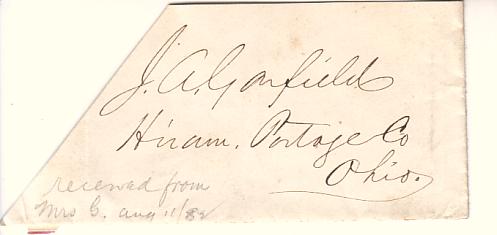 J. A. Garfield
Hiram, Portage Co
Ohio.
received from
Mrs G. aug 11/82